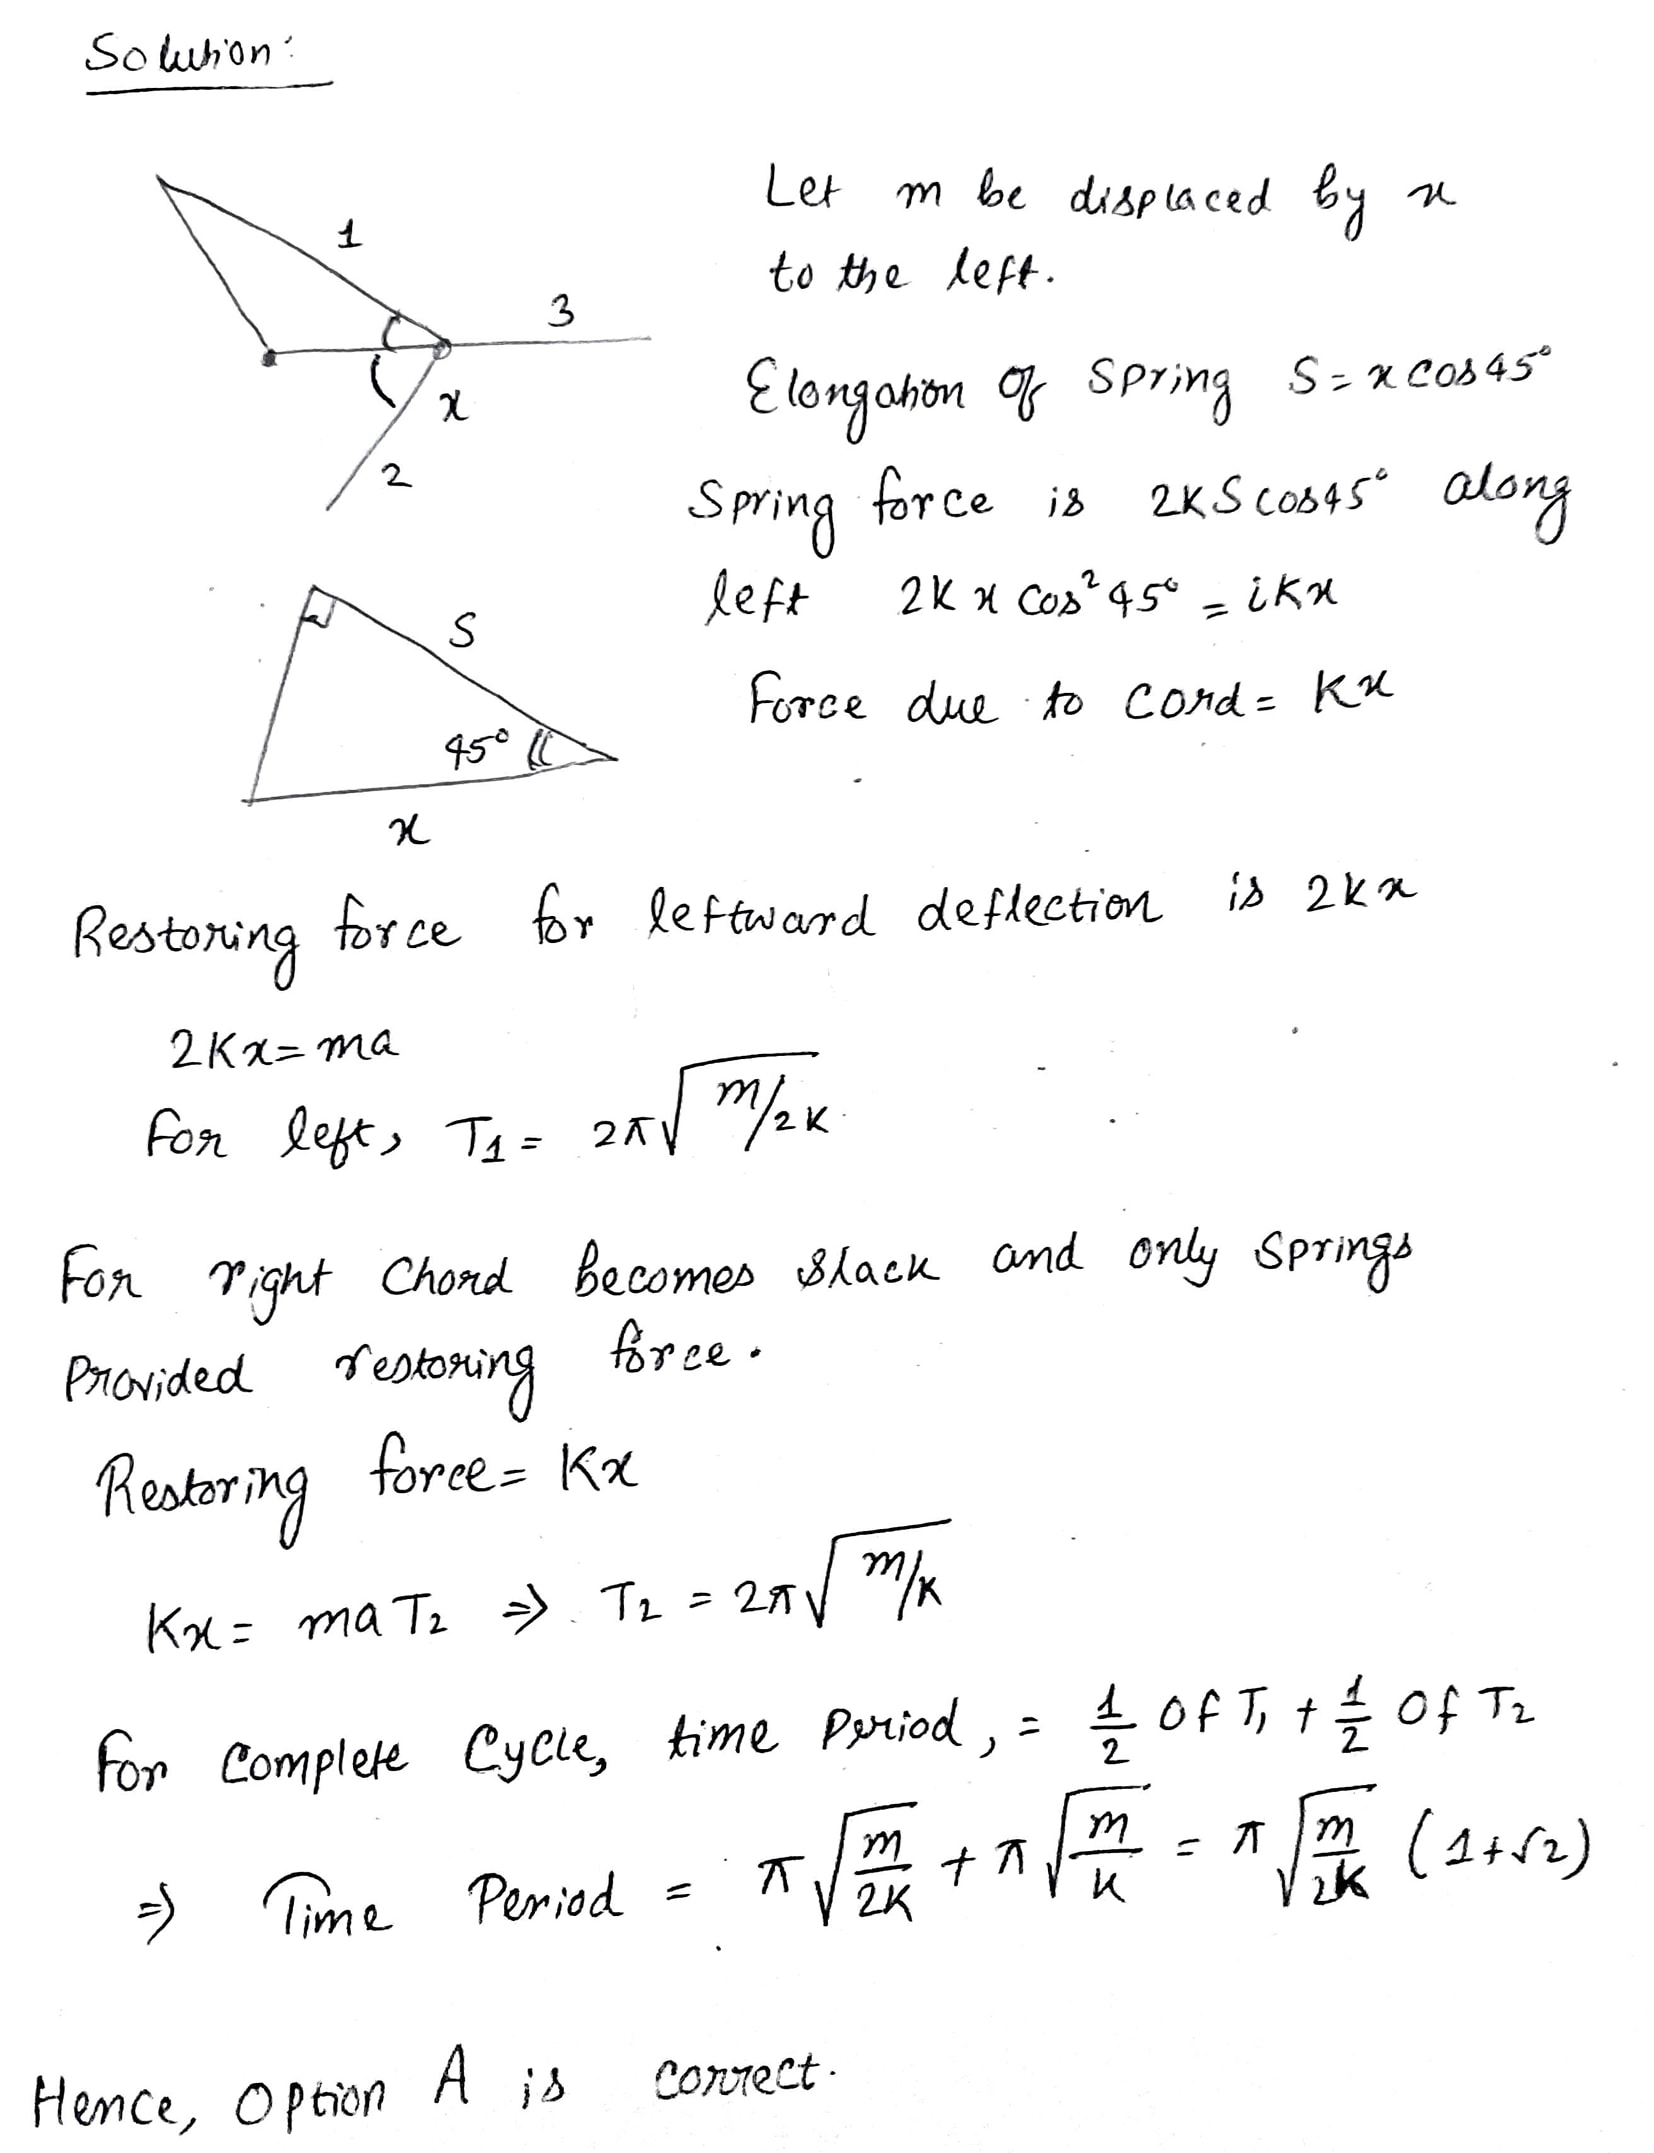 Solution:
1
3
x
2
Let m be displaced by x
to the left.
Elongation of spring S = x cos 45°
Spring force is 2KS cos45° along
left 2K x cos² 45° = iKx
Force due to cord = Kx
S
45°
x
Restoring force for leftward deflection is 2kx
2Kx = ma
For left, T₁ = 2π√m/2K
For right Chord becomes slack and only springs
Provided restoring force.
Restoring force = Kx
Kx = ma T₂ ⇒ T₂ = 2π√m/K
For complete Cycle, time Period, = 1/2 of T₁ + 1/2 of T₂
⇒ Time Period = π√m/2K + π√m/K = π√m/2K (1+√2)
Hence, Option A is correct.